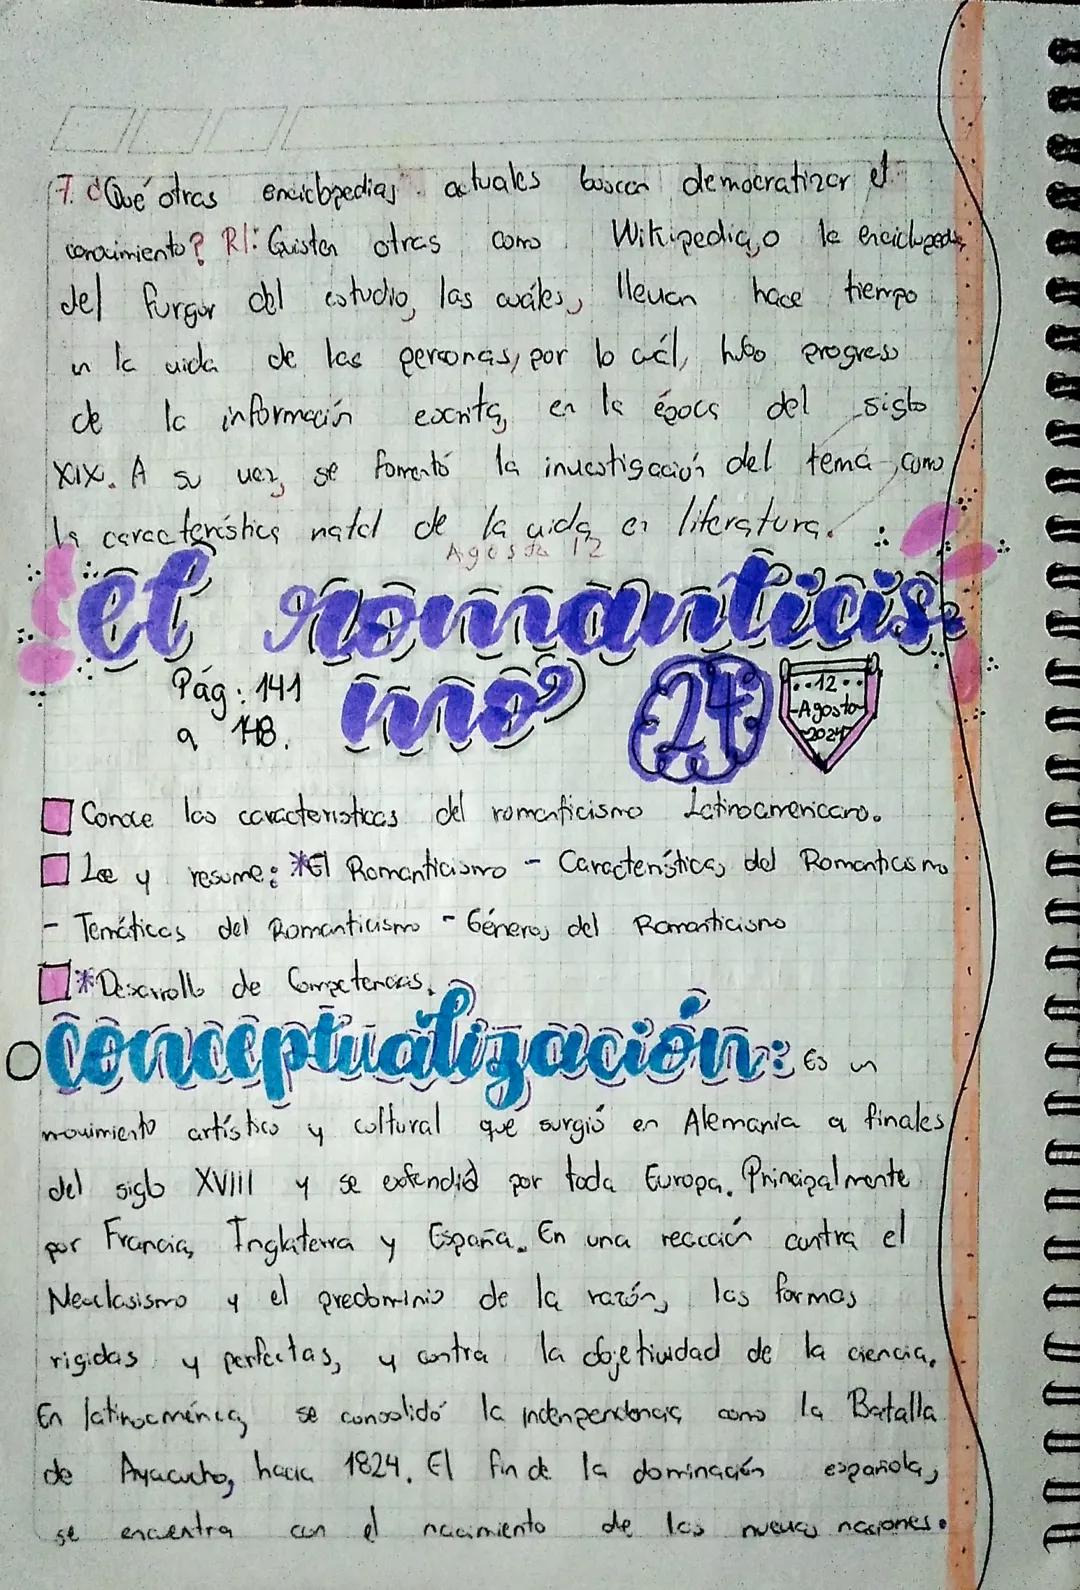 7. ¿Qué otras enciclopedias actuales buscan democratizar el
conocimiento? R/: Existen otras como Wikipedia, o la enciclopedia
del furgor del estudio, las cuáles, llevan hace tiempo
en la vida de las personas, por lo cuál, hubo progreso
de la información escrita, en la época del siglo
XIX. A su vez, se fomentó la investigación del tema, como
la característica natal de la vida en literatura.
Agosto 12
el romanticis
mo
Pág: 141
a 148.
24
12
Agosto
2024
Conoce las caracteristicas del romanticismo Latinoamericano.
Lee y resume: *El Romanticismo - Características del Romanticismo
- Temáticas del Romanticismo - Géneros del Romanticismo
*Desarrollo de Competencias.
Conceptualización: Es un
movimiento artístico y cultural que surgió en Alemania a finales
del siglo XVIII y se extendió por toda Europa. Principalmente
por Francia, Inglaterra y España. En una reacción contra el
Neoclasismo y el predominio de la razón, las formas
rigidas y perfectas, y contra la objetividad de la ciencia.
En latinoaménica, se consolidó la indenpendencia como la Batalla
de Ayacucho, hacia 1824. El fin de la dominación española,
se encuentra con el nacimiento de las nuevas naciones.